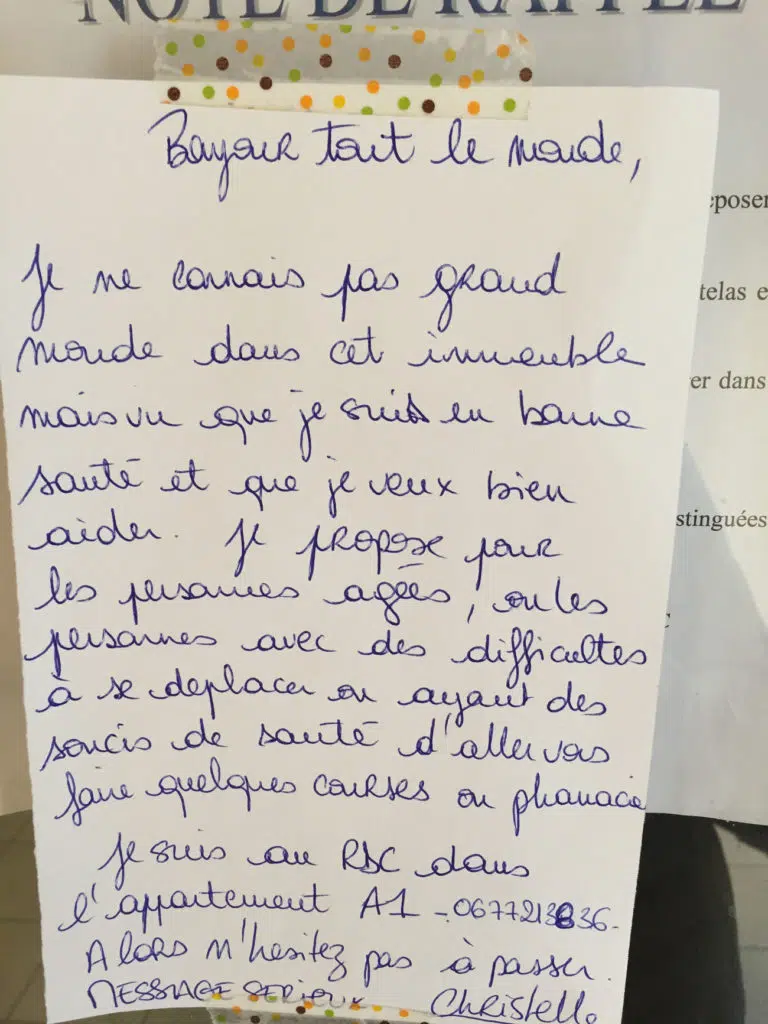 NOTE DE RAPPEL
Bonjour tout le monde,
époser
Je ne connais pas grand
telas e
monde dans cet immeuble
er dans
mais vu que je suis en bonne
santé et que je veux bien
stinguées
aider. Je propose pour
les personnes agées, ou les
personnes avec des difficultes
à se deplacer ou ayant des
soucis de santé d'aller vous
faire quelques courses ou pharmacie
Je suis au RDC dans
l'appartement A1 - 0677213836-
Alors n'hesitez pas à passer.
MESSAGE SERIEUX Christelle